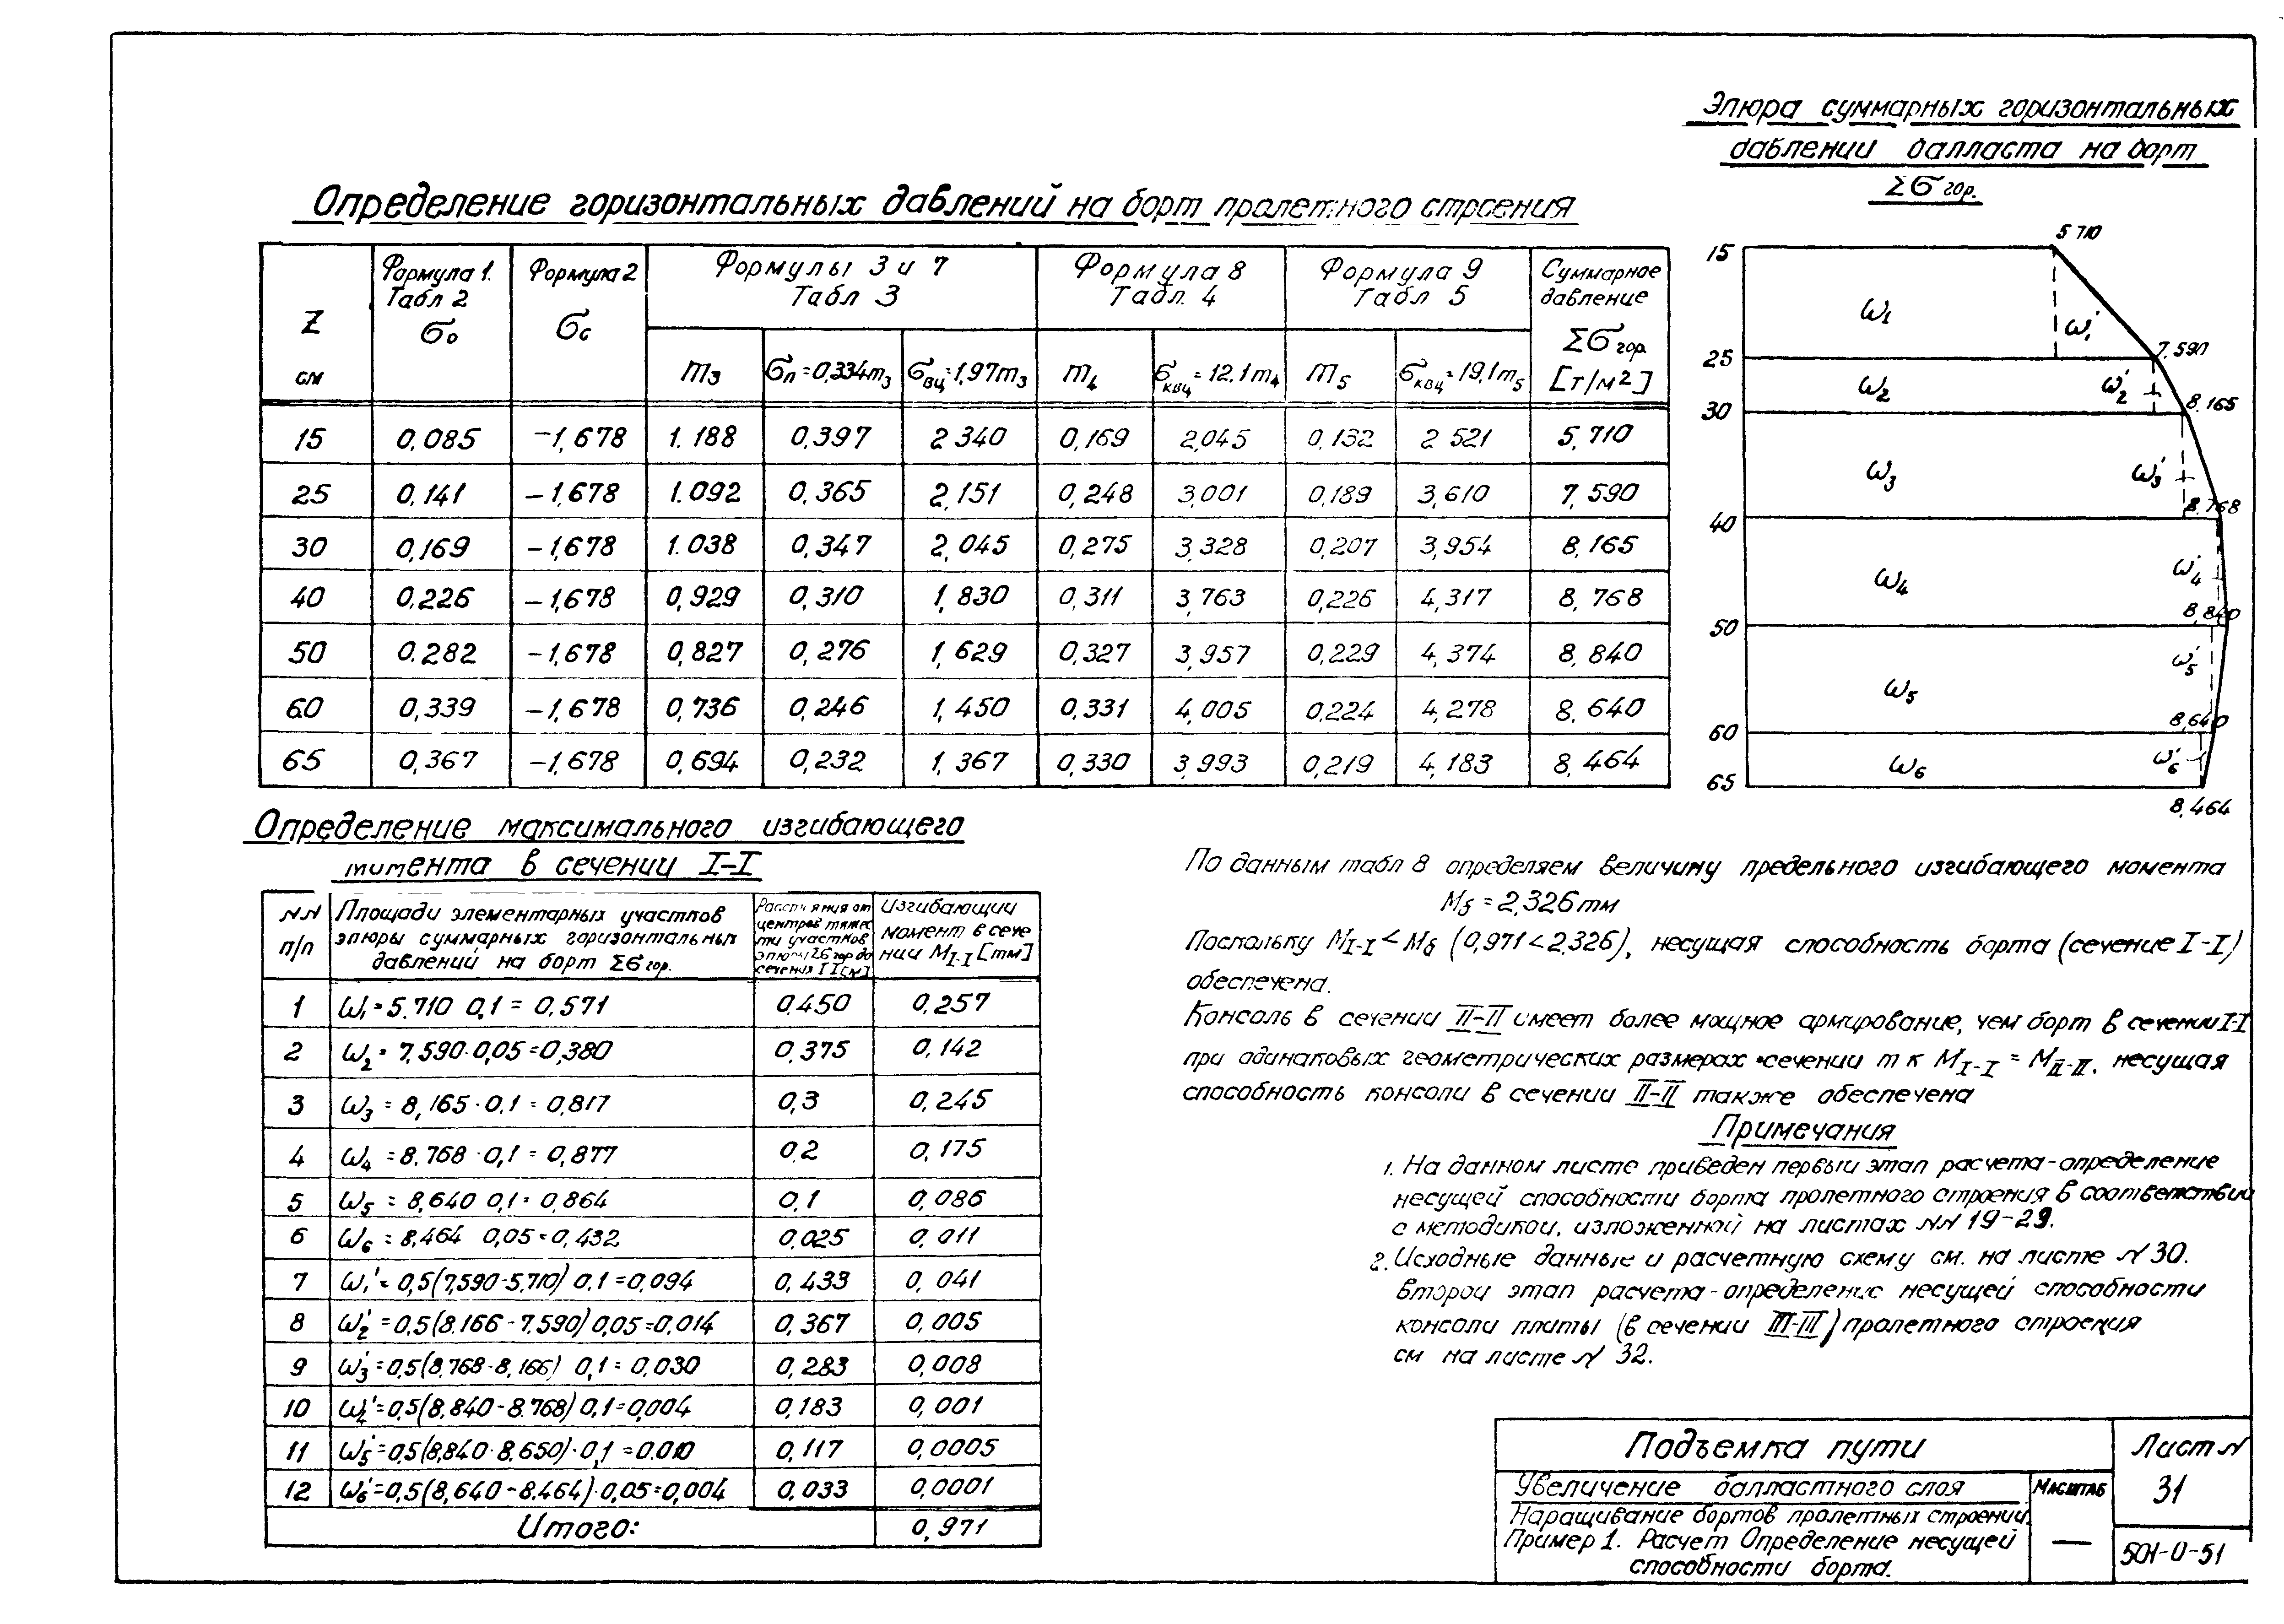 Эпюра суммарных горизонтальных
давлений балласта на борт
Σσ гор.
Определение горизонтальных давлений на борт пролетного строения
Z см | Формула 1. Табл 2 σ₀ | Формула 2 σс | Формулы 3 и 7 Табл 3 | Формула 8 Табл. 4 | Формула 9 Табл 5 | Суммарное давление Σσ гор. [т/м²]
m₃ | σп=0,334m₃ | σвц=1,97m₃ | m₄ | σквц=12.1m₄ | m₅ | σквц=19,1m₅
15 | 0,085 | -1,678 | 1.188 | 0,397 | 2 340 | 0,169 | 2,045 | 0,132 | 2 521 | 5,710
25 | 0,141 | -1,678 | 1.092 | 0,365 | 2,151 | 0,248 | 3,001 | 0,189 | 3,610 | 7,590
30 | 0,169 | -1,678 | 1.038 | 0,347 | 2,045 | 0,275 | 3,328 | 0,207 | 3,954 | 8,165
40 | 0,226 | -1,678 | 0,929 | 0,310 | 1,830 | 0,311 | 3,763 | 0,226 | 4,317 | 8,768
50 | 0.282 | -1,678 | 0,827 | 0,276 | 1,629 | 0,327 | 3,957 | 0,229 | 4,374 | 8,840
60 | 0,339 | -1,678 | 0,736 | 0,246 | 1,450 | 0,331 | 4,005 | 0,224 | 4,278 | 8.640
65 | 0,367 | -1,678 | 0,694 | 0,232 | 1,367 | 0,330 | 3,993 | 0,219 | 4,183 | 8,464
15 5 710
ω₁ ω₁'
25 7,590
ω₂ ω₂'
30 8,165
ω₃ ω₃'
40 8.768
ω₄ ω₄'
50 8,840
ω₅ ω₅'
60 8,640
ω₆ ω₆'
65 8,464
Определение максимального изгибающего
момента в сечении I-I
NN п/п | Площади элементарных участков эпюры суммарных горизонтальных давлений на борт Σσ гор. | Расстояния от центров тяжести участков эпюры Σσ гор до сечения I I [м] | Изгибающий момент в сечении M I-I [тм]
1 | ω₁=5.710 0,1 = 0,571 | 0.450 | 0,257
2 | ω₂=7,590·0,05=0,380 | 0,375 | 0,142
3 | ω₃=8,165·0,1=0,817 | 0,3 | 0,245
4 | ω₄=8.768·0,1=0,877 | 0.2 | 0,175
5 | ω₅=8,640 0,1=0,864 | 0,1 | 0,086
6 | ω₆=8,464 0,05=0,432 | 0,025 | 0,011
7 | ω₁'=0,5(7,590-5,710) 0,1=0,094 | 0,433 | 0,041
8 | ω₂'=0,5(8.166-7.590) 0,05=0,014 | 0,367 | 0,005
9 | ω₃'=0,5(8,768-8,166) 0,1=0,030 | 0,283 | 0,008
10 | ω₄'=0,5(8,840-8.768) 0,1=0,004 | 0,183 | 0,001
11 | ω₅'=0,5(8,840-8,650)·0,1=0.010 | 0,117 | 0,0005
12 | ω₆'=0,5(8,640-8.464)·0,05=0,004 | 0,033 | 0,0001
Итого: | 0,971
По данным табл 8 определяем величину предельного изгибающего момента
Mб = 2,326 тм
Поскольку M I-I < Mб (0,971<2,326), несущая способность борта (сечение I-I)
обеспечена.
Консоль в сечении II-II имеет более мощное армирование, чем борт в сечении I-I
при одинаковых геометрических размерах сечений т к M I-I = M II-II, несущая
способность консоли в сечении II-II также обеспечена
Примечания
1. На данном листе приведен первый этап расчета-определение
несущей способности борта пролетного строения в соответствии
с методикой, изложенной на листах NN 19-29.
2. Исходные данные и расчетную схему см. на листе N 30.
Второй этап расчета-определение несущей способности
консоли плиты (в сечении III-III) пролетного строения
см на листе N 32.
Подъемка пути
Лист N
31
Увеличение балластного слоя
Масштаб
—
Наращивание бортов пролетных строений.
Пример 1. Расчет Определение несущей
способности борта.
501-0-51